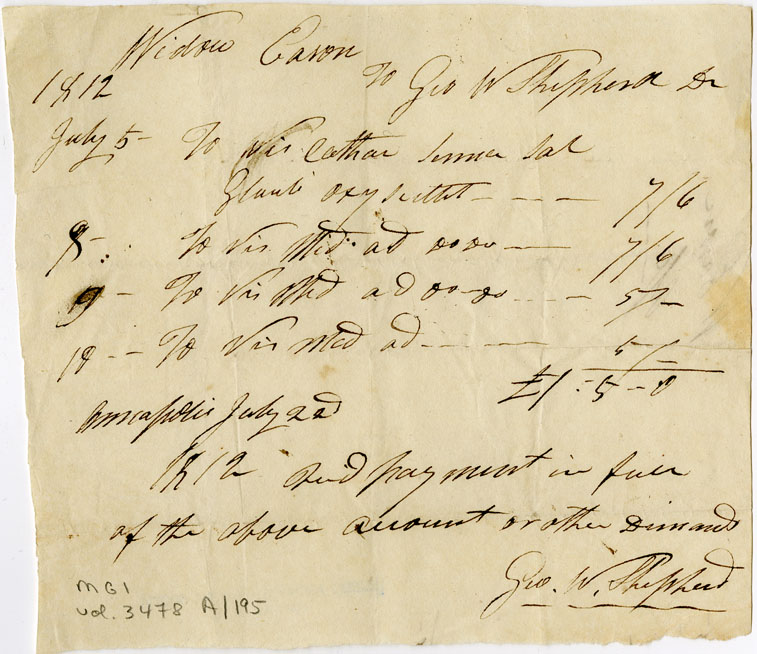 Widow Eason
1812 To Geo W Shepherd Dr
July 5 - To Vis Cathar Senna Sal
Glaub - - - - 7/6
8 - To Vis Med ad do do - - 7/6
9 - To Vis Med ad do do - - - 5/-
18 - - To Vis Med ad - - - - 5/-
£1 : 5 - 0
Annapolis July 22d
1812 Recd payment in full
of the above account or other Demands
Geo. W. Shepherd
MG1
vol. 3478 A/195